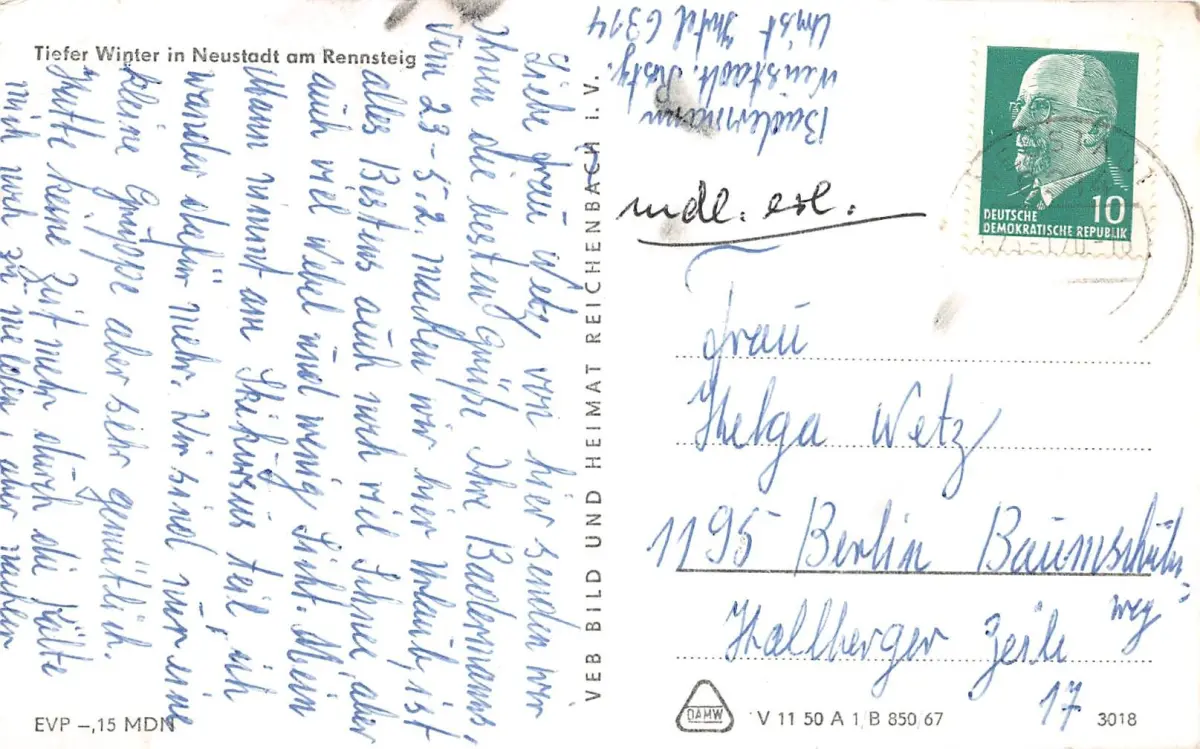 Tiefer Winter in Neustadt am Rennsteig
Liebe Frau Wetz, von hier senden wir
Ihnen die besten Grüße Ihre Badermanns
Vom 23.-5.2. machen wir hier Urlaub, ist
alles Bestens auch noch viel Schnee, aber
auch viel Nebel und wenig Sicht. Mein
Mann nimmt am Skikursus teil, ich
wander dafür mehr. Wir sind nur eine
kleine Gruppe aber sehr gemütlich.
Hatte keine Zeit mehr durch die Kälte
mich noch zu melden, aber nachher
EVP –,15 MDN
VEB BILD UND HEIMAT REICHENBACH i. V.
Badermann,
Neustadt. Rstg.
6314
mdl. erl.
DEUTSCHE
DEMOKRATISCHE REPUBLIK
10
Frau
Helga Wetz
1195 Berlin Baumschulen-
weg
Hallberger Zeile
17
DAMW
V 11 50 A 1/B 850/67
3018